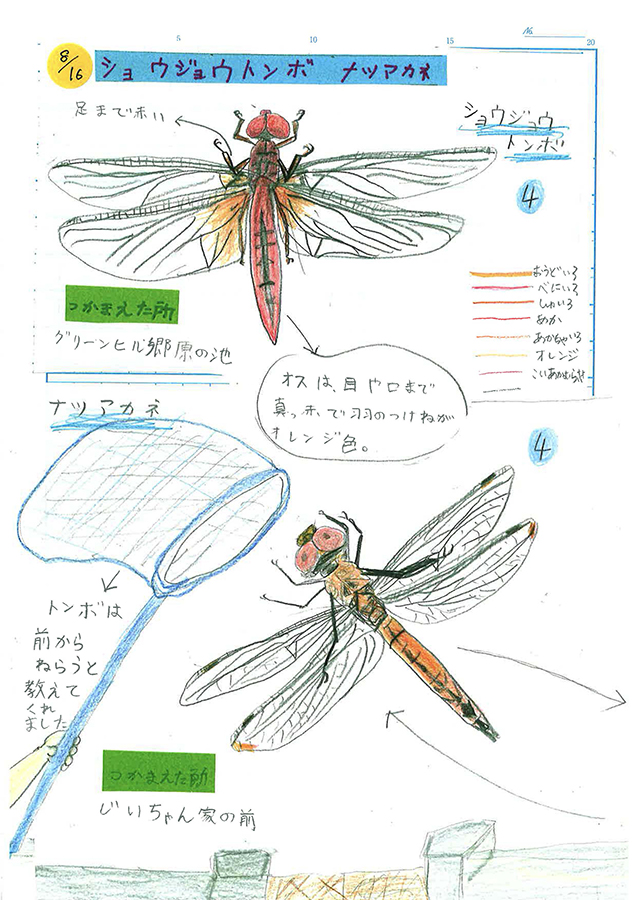 5 10 15 20
No.
8/16
ショウジョウトンボ ナツアカネ
足まで赤い
ショウジョウ
トンボ
4
おうどいろ
べにいろ
しゅいろ
あか
あかちゃいろ
オレンジ
つかまえた所
グリーンヒル郷原の池
オスは、目や口まで
真っ赤で羽のつけねが
オレンジ色。
ナツアカネ
4
トンボは
前から
ねらうと
教えて
くれ
ました
つかまえた所
じいちゃん家の前